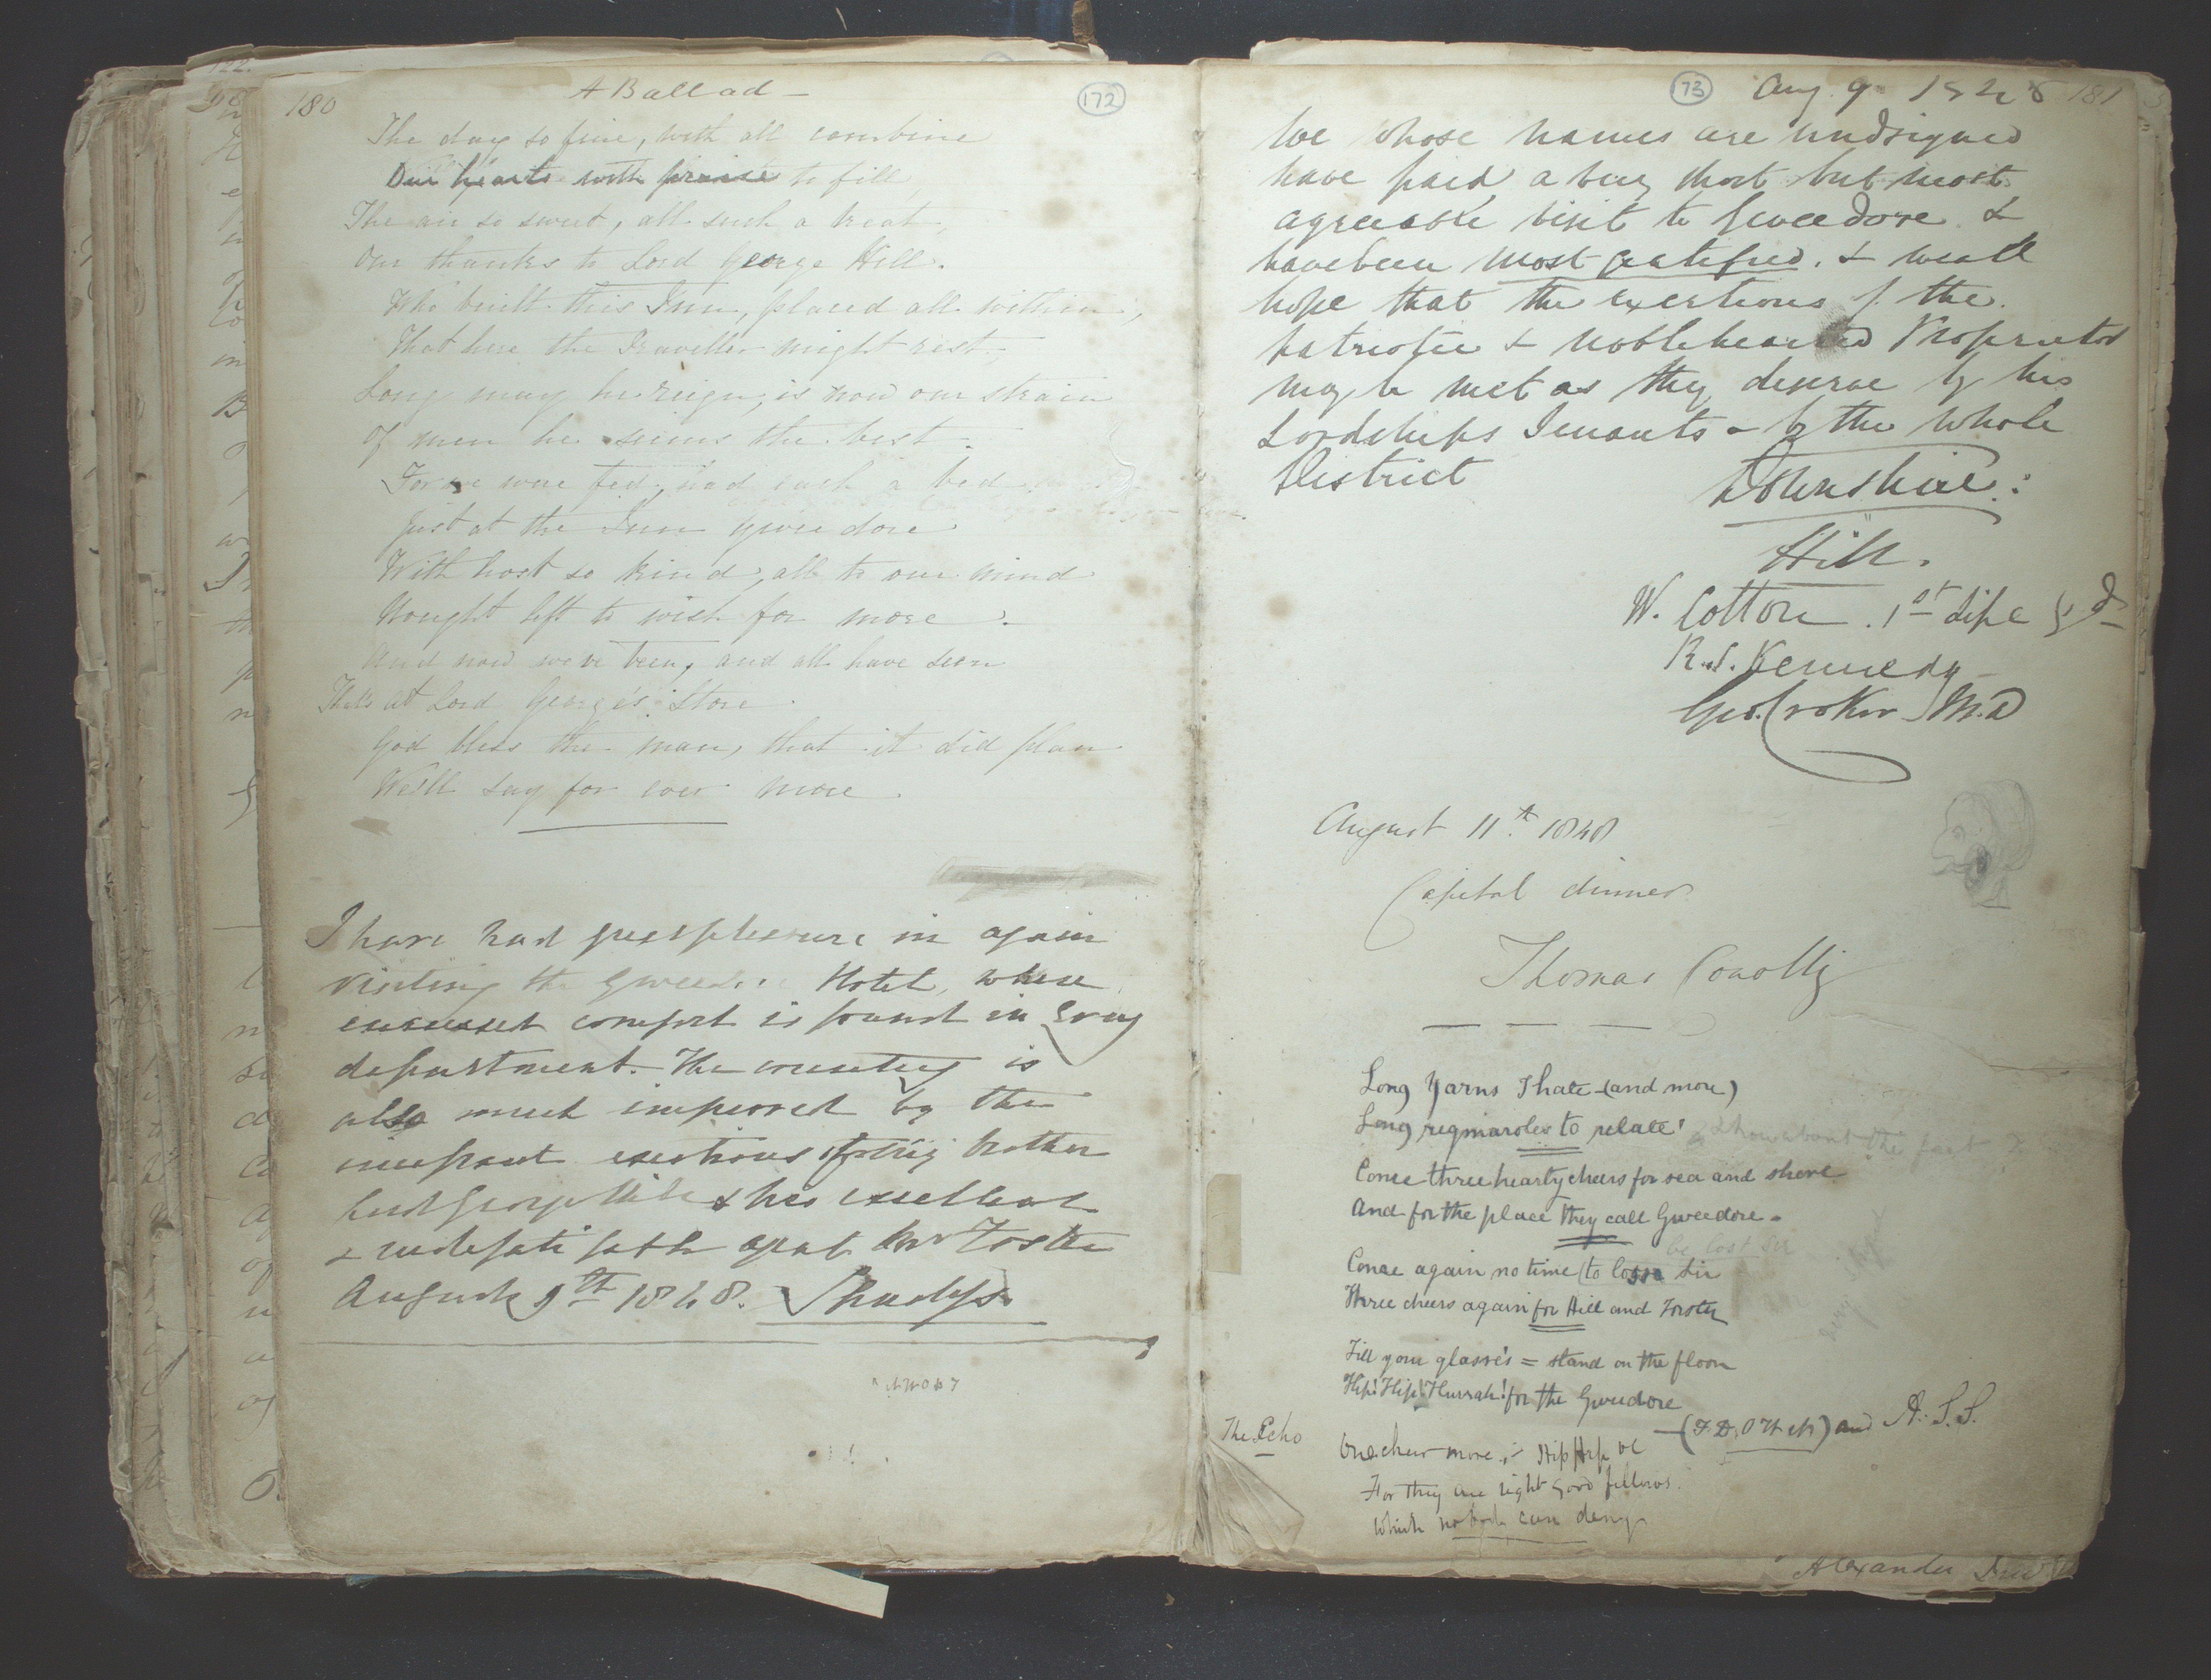 180
A Ballad —
172
The day so fine, with all combine
Our hearts with praise to fill
The air so sweet, all such a treat,
Our thanks to Lord George Hill.
Who built this Inn, placed all within,
That here the Traveller might rest,
Long may he reign, is now our strain
Of men he seems the best.
For we were fed, had each a bed
Just at the Inn Gweedore
With host so kind, all to our mind
Nought left to wish for more.
And now we've been, and all have seen
That's at Lord George's Store.
God bless the man, that it did plan
We'll say for ever more.
I have had great pleasure in again
visiting the Gweedore Hotel, where
comfort is found in every
department. The country is
also much improved by the
incessant exertions of my brother
Lord George Hill & his excellent
& indefatigable agent Mr Foster
August 9th 1848.
73
Aug. 9 1848
181
We whose names are undsigned
have paid a very short but most
agreeable visit to Gweedore &
have been most gratified. & we all
hope that the exertions of the
patriotic & noblehearted Proprietor
may be met as they deserve by his
Lordships Tenants & by the whole
District
Downshire.
Hill.
W. Cotton. 1st Life Gds
R. S. Kennedy
Geo. Croker M.D
August 11th 1848
Capital dinner
Thomas Conolly
Long Yarns I hate (and more)
Long rigmaroles to relate!
Come three hearty cheers for sea and shore
And for the place they call Gweedore.
be lost sir
Come again no time to lose Sir
Three cheers again for Hill and Forster
Fill your glasses = stand on the floor
Hip! Hip! Hurrah! for the Gweedore
and A. S. S.
The Echo
One cheer more, Hip Hip &c
For they are right good fellows.
Which nobody can deny
Alexander